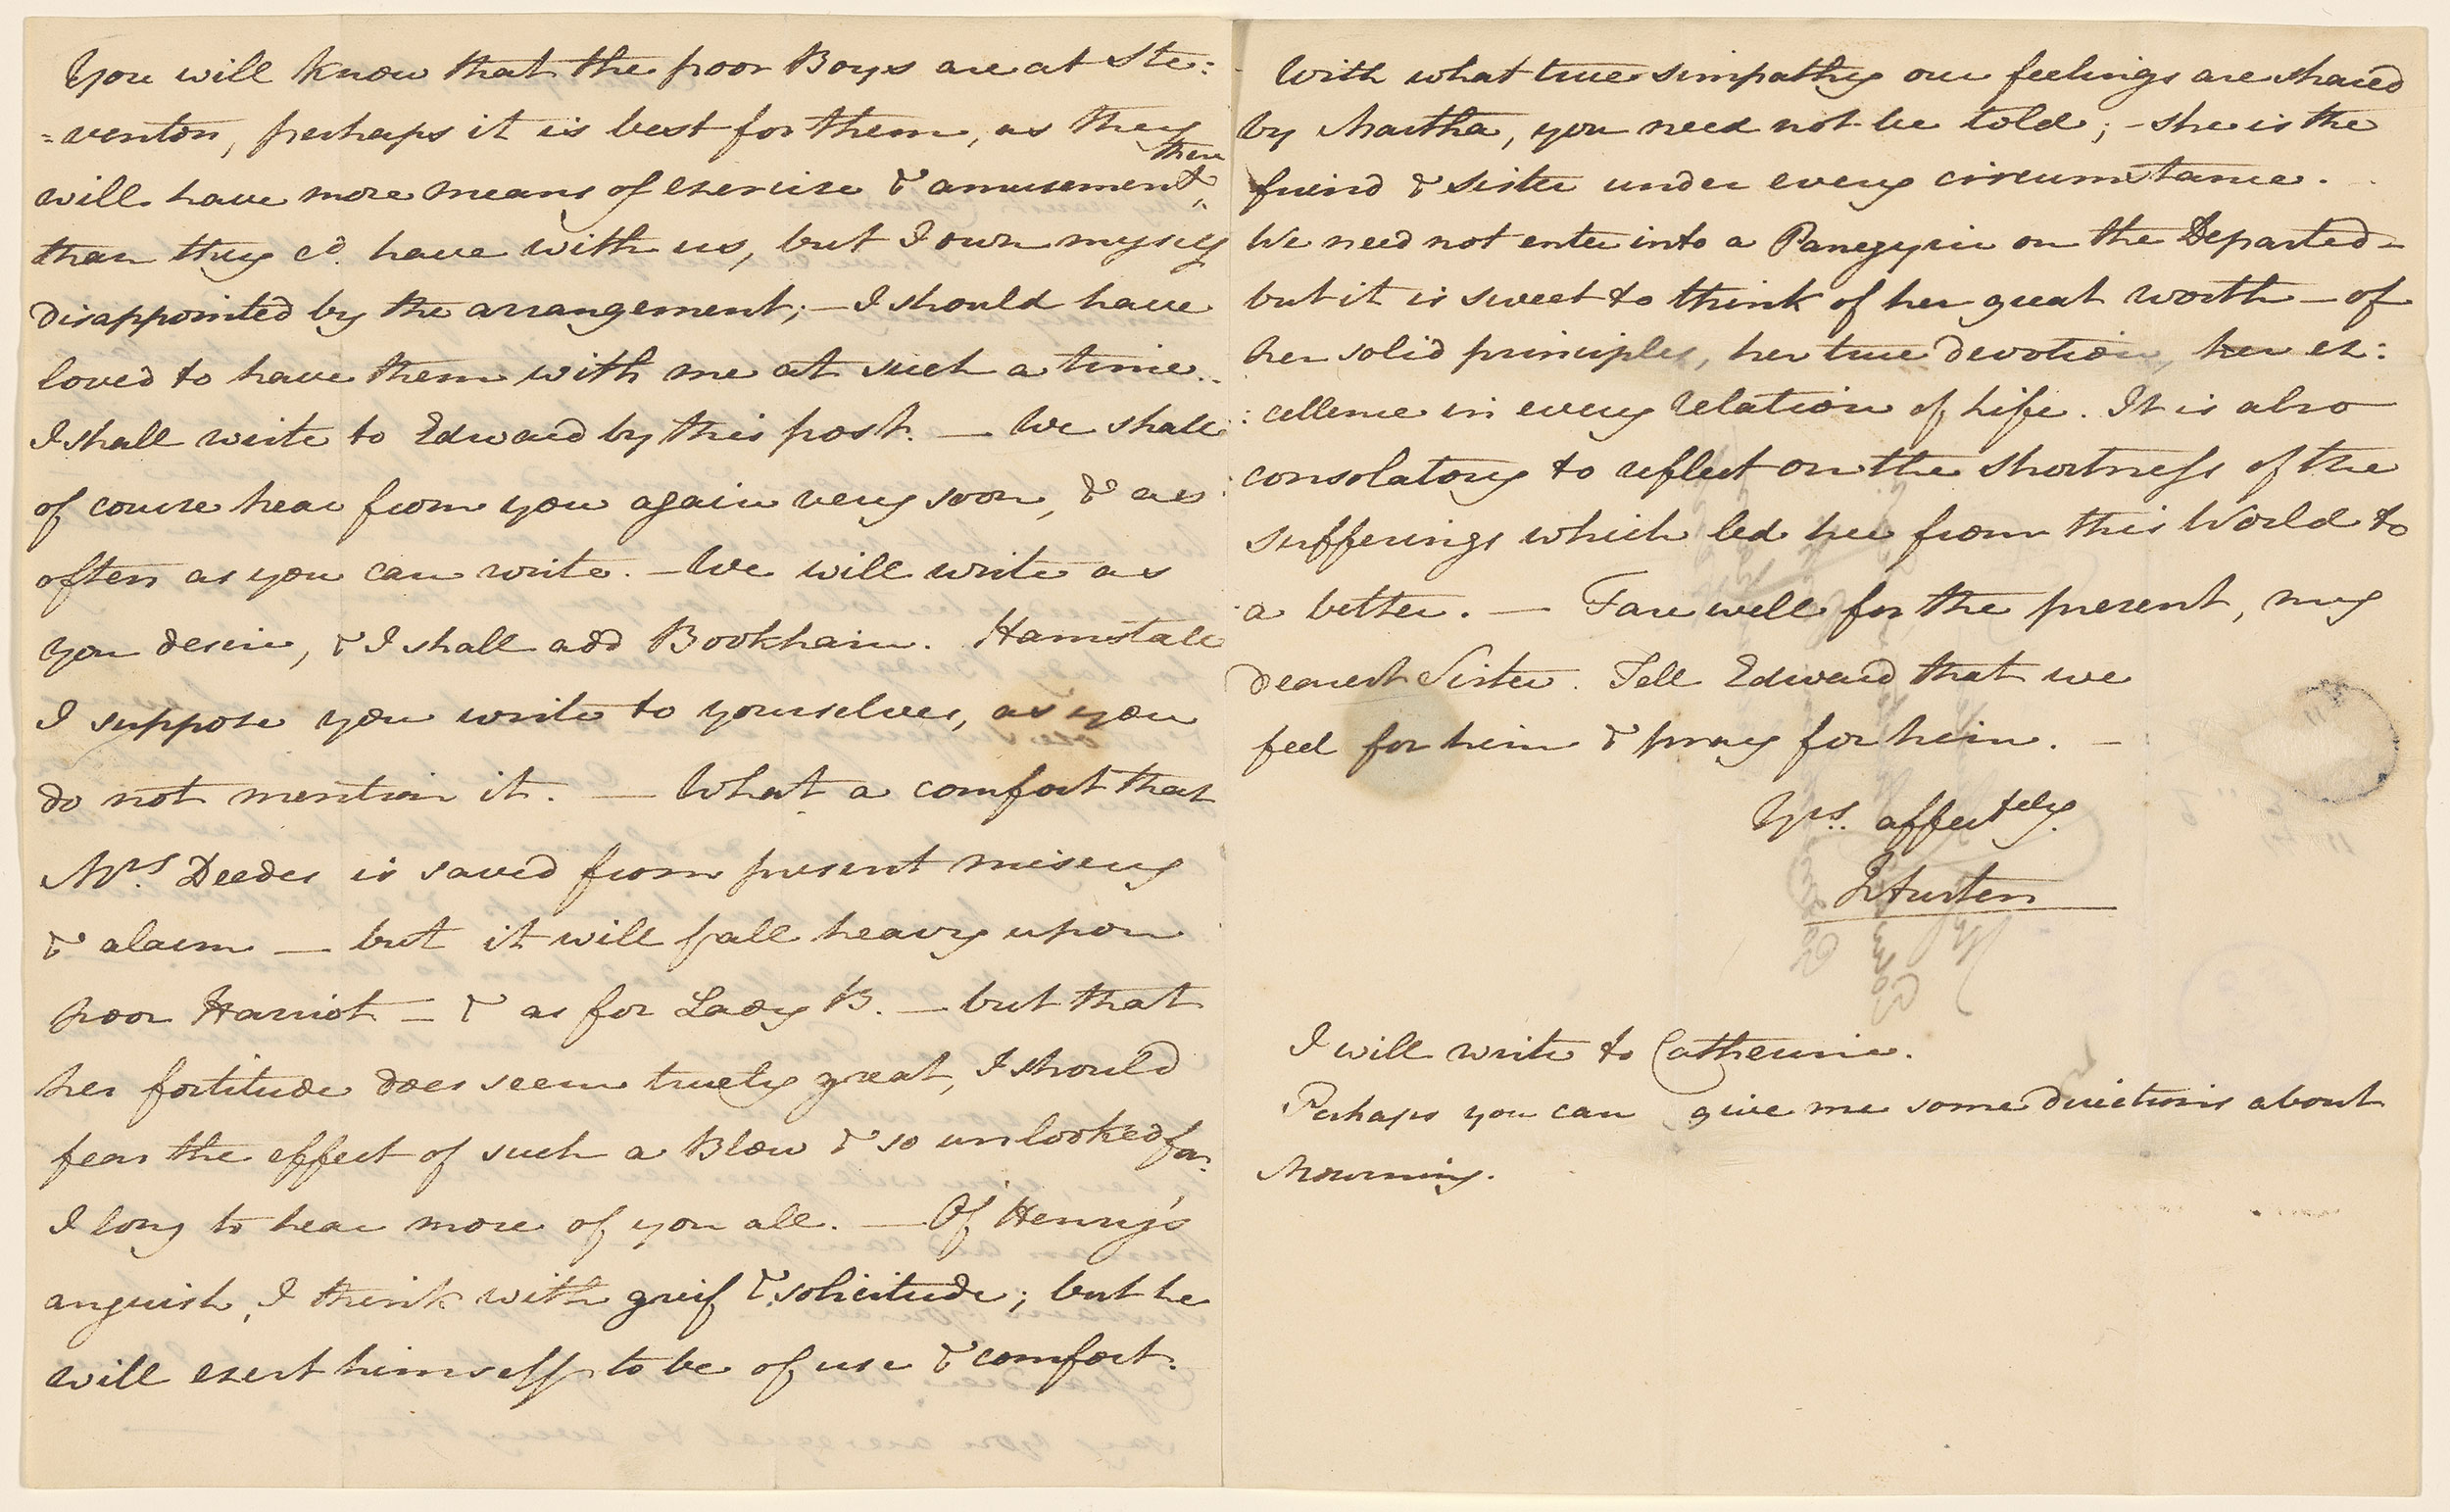 You will know that the poor Boys are at Ste:
=venton, perhaps it is best for them, as they
there
will have more means of exercise & amusement
than they cd. have with us, but I own myself
disappointed by the arrangement; — I should have
loved to have them with me at such a time.
I shall write to Edward by this post. — We shall
of course hear from you again very soon, & as
often as you can write. — We will write as
you desire, & I shall add Bookham. Hamstall
I suppose you write to yourselves, as you
do not mention it. — What a comfort that
Mrs. Deedes is saved from present misery
& alarm — but it will fall heavy upon
poor Harriot — & as for Lady B. — but that
her fortitude does seem truely great, I should
fear the effect of such a Blow & so unlooked for.
I long to hear more of you all. — Of Henry's
anguish, I think with greif & solicitude; but he
will exert himself to be of use & comfort.
With what true simpathy our feelings are shared
by Martha, you need not be told; — she is the
friend & Sister under every circumstance.
We need not enter into a Panegyric on the Departed —
but it is sweet to think of her great worth — of
her solid principles, her true devotion, her ex:
:cellence in every relation of Life. It is also
consolatory to reflect on the shortness of the
sufferings which led her from this World to
a better. — Farewell for the present, my
dearest Sister. Tell Edward that we
feel for him & pray for him. —
Yrs. affectely.
J Austen
I will write to Catherine.
Perhaps you can give me some directions about
Mourning.